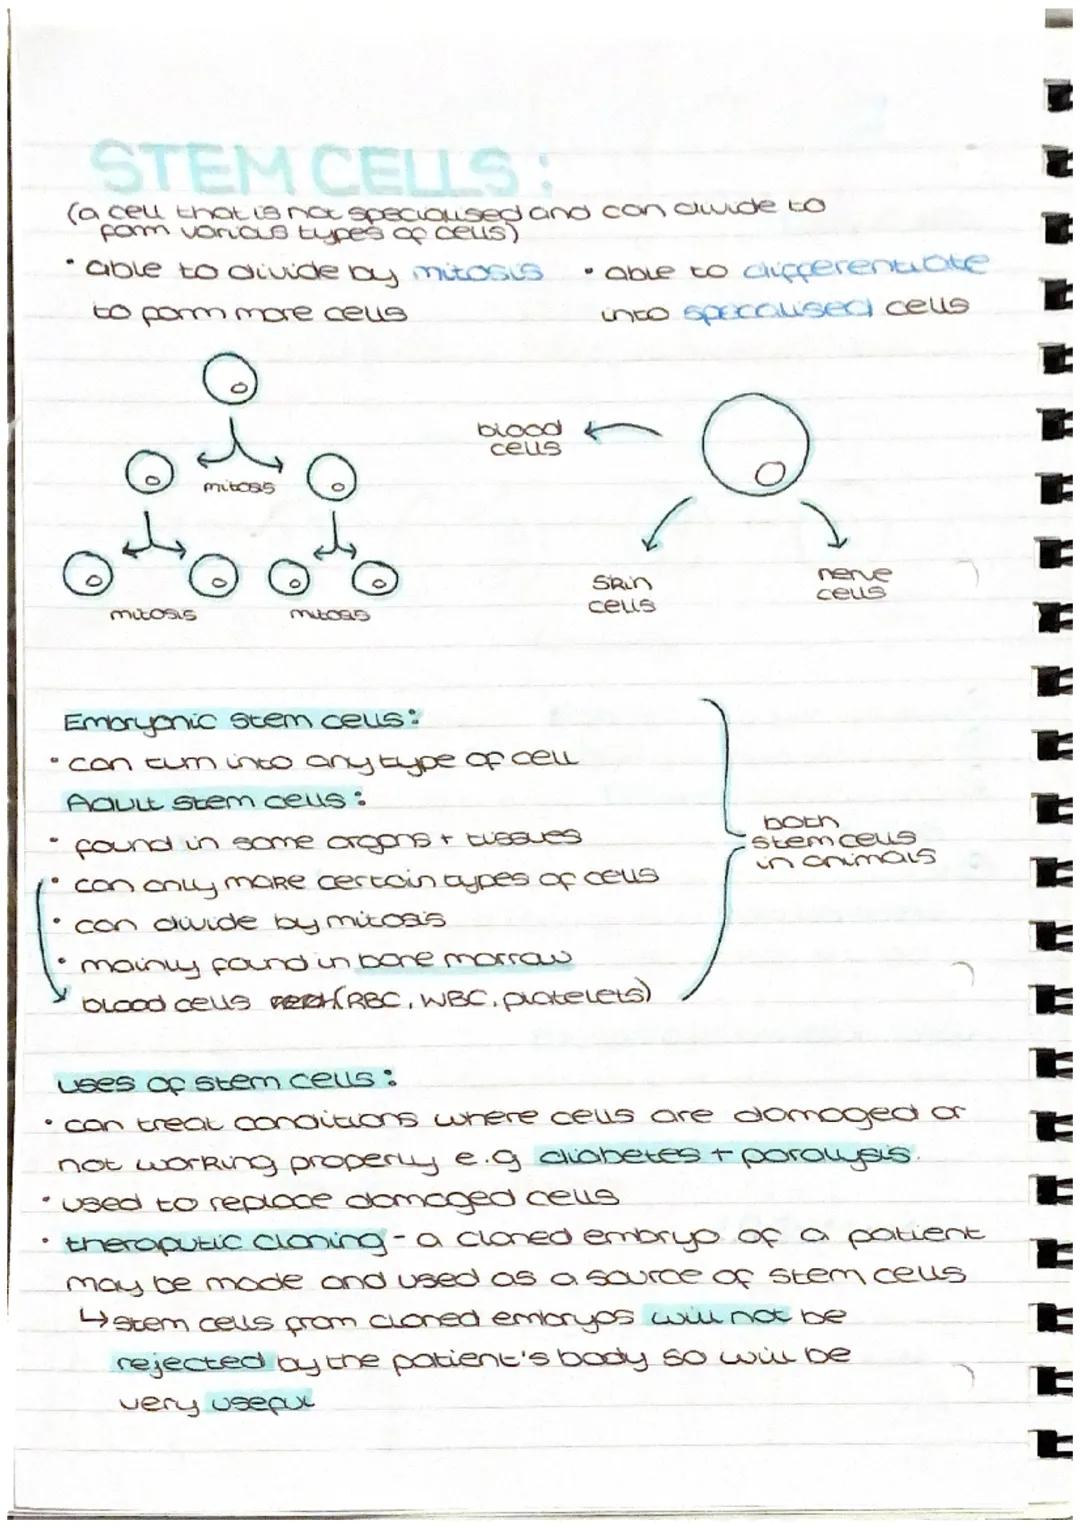 STEM CELLS:
(a cell that is not specialised and can divide to
form various types of cells)
• able to divide by mitosis
to form more cells
• able to differentiate
into specialised cells
mitosis
mitosis
mitosis
blood
cells
skin
cells
nerve
cells
Embryonic stem cells:
• can turn into any type of cell
Adult stem cells:
• found in some organs + tissues
• can only make certain types of cells
• can divide by mitosis
• mainly found in bone marrow
blood cells (RBC, WBC, platelets)
both
stem cells
in animals
uses of stem cells:
• can treat conditions where cells are damaged or
not working properly e.g diabetes + paralysis.
• used to replace damaged cells
• theraputic cloning - a cloned embryo of a patient
may be made and used as a source of stem cells
↳ stem cells from cloned embryos will not be
rejected by the patient's body so will be
very useful